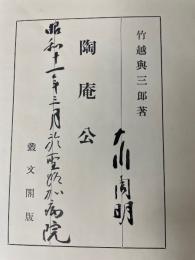 竹越與三郎著
大川周明
陶庵公
叢文閣版
昭和十一年三月於聖路加病院